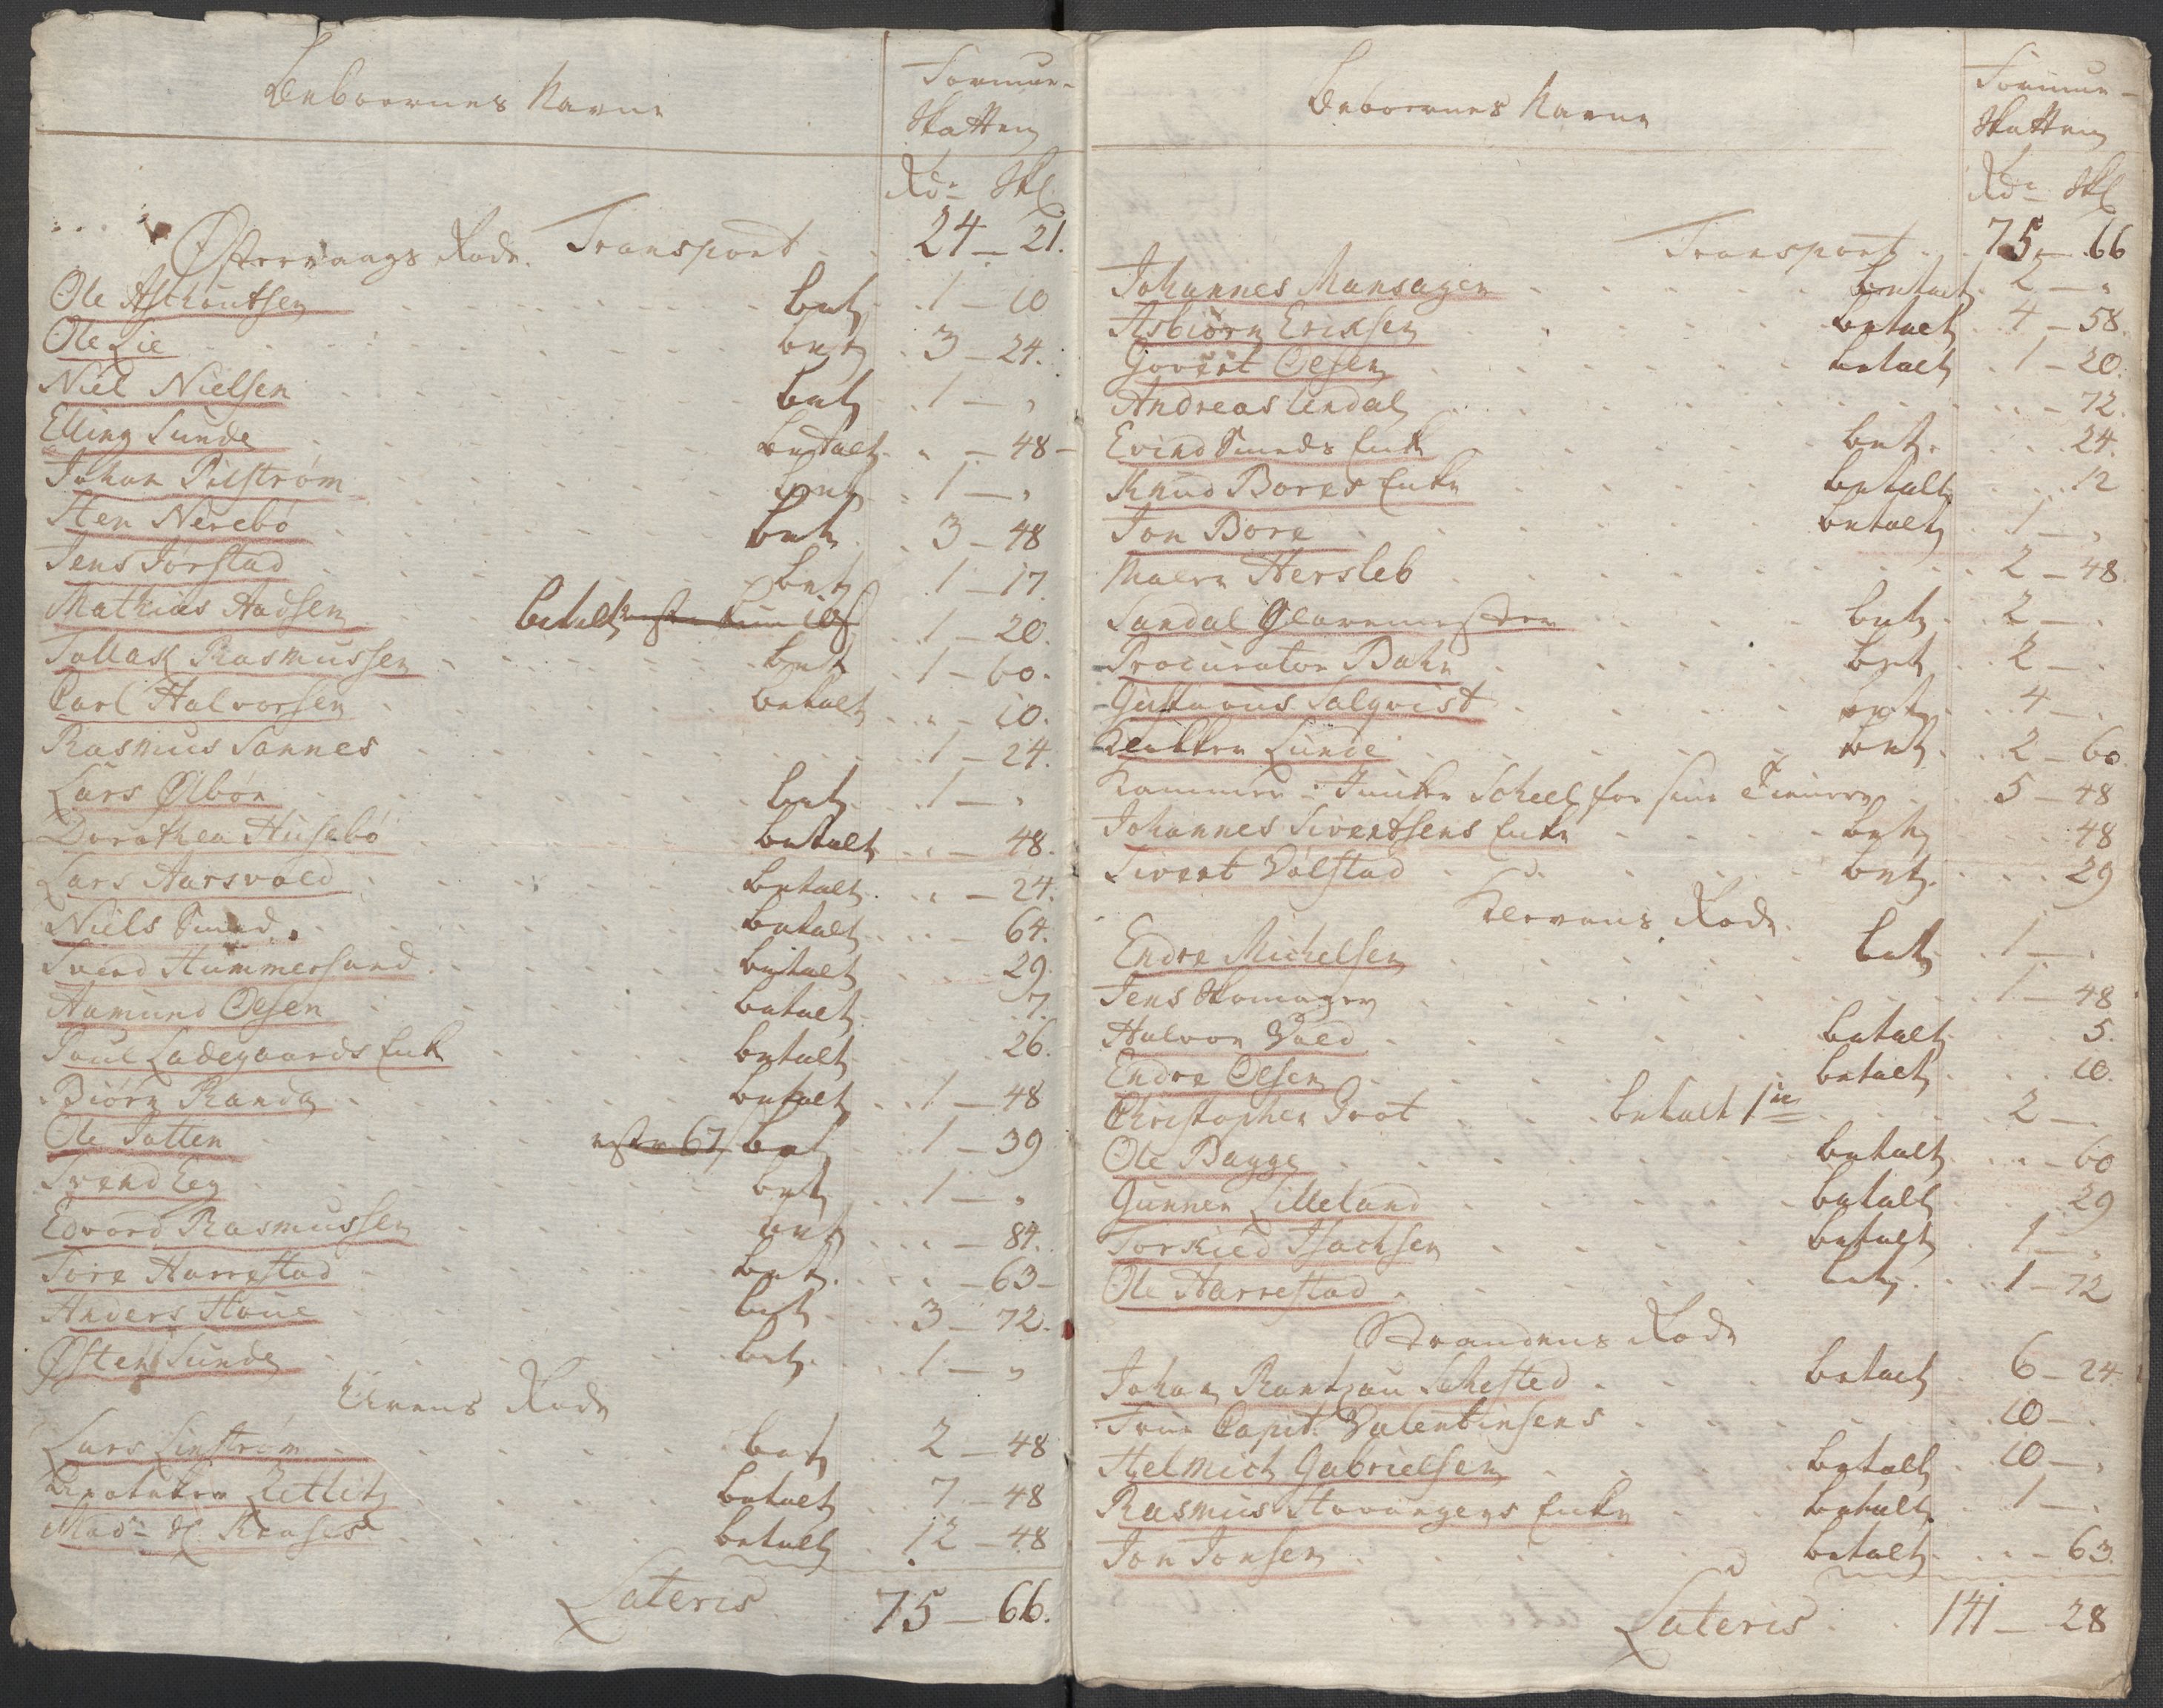 Beboernes Navne
Formue-
Skatten
Rdr Skl
Østervaags Rode. Transport . . 24 – 21.
Ole Asthoutsen bet 1 – 10
Ole Lie bet 3 – 24.
Niel Nielsen bet 1 – „
Elling Sunde betalt „ – 48 –
Johan Pilstrøm bet 1 – „
Sten Nerebø bet 3 – 48
Jens Jørstad bet 1 – 17
Mathias Aadsen betalt 1 – 20.
Tollak Rasmussen bet 1 – 60.
Carl Halvorsen betalt „ – 10.
Rasmus Sannes 1 – 24.
Lars Ølbør bet 1 – „
Dorothea Husebø betalt „ – 48.
Lars Aarsvold betalt „ – 24.
Niels Smed betalt – 64.
Svend Hummersand betalt 29.
Aamund Olsen betalt 7.
Poul Ladegaards Enke betalt 26.
Biørn Randa betalt 1 – 48
Ole Jatten rester 67 bet 1 – 39
Svend Eeg bet 1 – „
Edvard Rasmussen bet „ – 84.
Tore Harrestad bet. „ – 63 –
Anders Houe bet 3 – 72.
Østen Sunde bet. 1 – „
Urens Rode
Lars Linstrøm bet 2 – 48
Apoteker Zetlitz betalt 7 – 48
Madm Sl. Krases betalt 12 – 48
Lateris 75 – 66.
Beboernes Navne
Formue-
Skatten
Rdr Skl
Transport . . 75 – 66
Johannes Mansager betalt 2 – „
Asbiørn Ericksen betalt 4 – 58.
Govert Olsen betalt 1 – 20.
Andreas Undal – 72.
Evind Smeds Enke bet. 24.
Knud Bores Enke betalt 12
Jon Bore betalt 1 – „
Maler Hersleb 2 – 48.
Sandal Glarmester bet 2 – „
Procurator Bahr bet 2 – .
Gustavus Salqvist bet 4 – .
Klokker Lunde bet 2 – 60
Kammer-Junker Scheel for sine Tienere 5 – 48
Johannes Sivertsens Enke bet 48
Sivert Vølstad bet. 29
Klevens Rode.
Endre Michelsen bet 1 – .
Jens Skomager 1 – 48
Halvor Vold betalt 5.
Endre Olsen betalt 10.
Christopher Grot betalt 1 2 – .
Ole Bagge betalt „ – 60
Gunner Lilleland betalt 29
Torkied Isachsen betalt 1 – „
Ole Harrestad bet. 1 – 72
Strandens Rode
Johan Rantzau Sehested betalt 6 – 24.
Frue Capit. Valentinsens 10 – .
Helmich Gabrielsen betalt 10 – „
Rasmus Stovangers Enke betalt 1 – .
Jon Jonsen betalt „ – 63.
Lateris 141 – 28